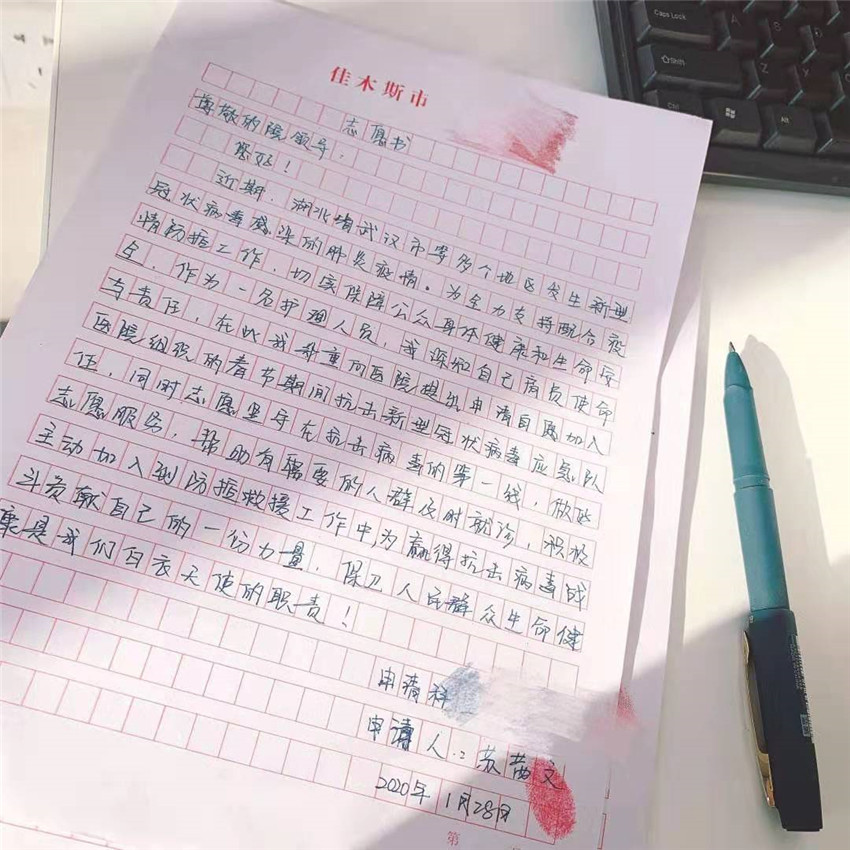 佳木斯市
志愿书
尊敬的院领导，
您好！
近期，湖北省武汉市等多个地区发生新型
冠状病毒感染的肺炎疫情。为全力支持配合疫
情防控工作，切实保障公众身体健康和生命安
全，作为一名护理人员，我深知自己肩负使命
与责任，在此我郑重向医院提出申请自愿加入
医院组织的春节期间抗击新型冠状病毒应急队
伍，同时志愿坚守在抗击病毒的第一线，做好
志愿服务，帮助有需要的人群及时就诊，积极
主动加入到防控救援工作中，为赢得抗击病毒战
斗贡献自己的一份力量，保卫人民群众生命健
康是我们白衣天使的职责！
申请科
申请人：苏茜文
2020年1月28日
第
Caps Lock
Shift
Ctrl
A
Z